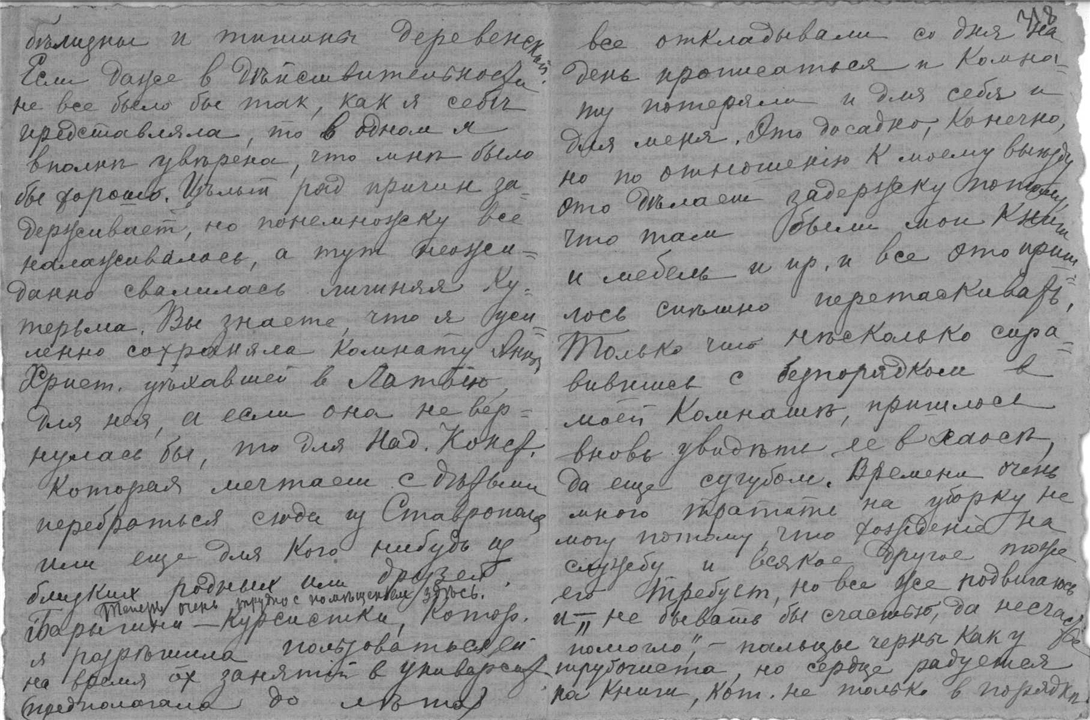 бѣлизны и тишины деревенской.
Если даже в дѣйствительности
не все было бы так, как я себѣ
представляла, то в одном я
вполнѣ увѣрена, что мнѣ было
бы хорошо. Цѣлый ряд причин за-
держивает, но понемножку все
налаживалось, а тут неожи-
данно свалилась лишняя ку-
терьма. Вы знаете, что я уси-
ленно сохраняла комнату Анны
Христ. уѣхавшей в Латвію,
для нея, а если она не вер-
нулась бы, то для Над. Конст.
которая мечтает с дѣтьми
перебраться сюда из Ставрополя
или еще для кого нибудь из
близких родных или друзей.
Теперь очень трудно с помѣщеніем здѣсь.
Барышни – курсистки, котор.
я разрѣшила пользоваться ей
на время их занятій в университ
предполагала до лѣта
318
все откладывали со дня на
день прописаться и комна-
ту потеряли и для себя и
для меня. Это досадно, конечно,
но по отношенію к моему выѣзду
это дѣлает задержку потому,
что там были мои книги
и мебель и пр. и все это приш-
лось спѣшно перетаскивать.
Только что нѣсколько спра-
вившись с безпорядком в
моей комнатѣ, пришлось
вновь увидѣть ее в хаосѣ,
да еще сугубом. Времени очень
много тратить на уборку не
могу потому, что хожденіе на
службу и всякое другое тоже
его требует, но все же подвигаюсь
и „не бывать бы счастью, да несчастье
помогло“, – пальцы черны как у
трубочиста, но сердце радуется
на книги, кот. не только в порядкѣ